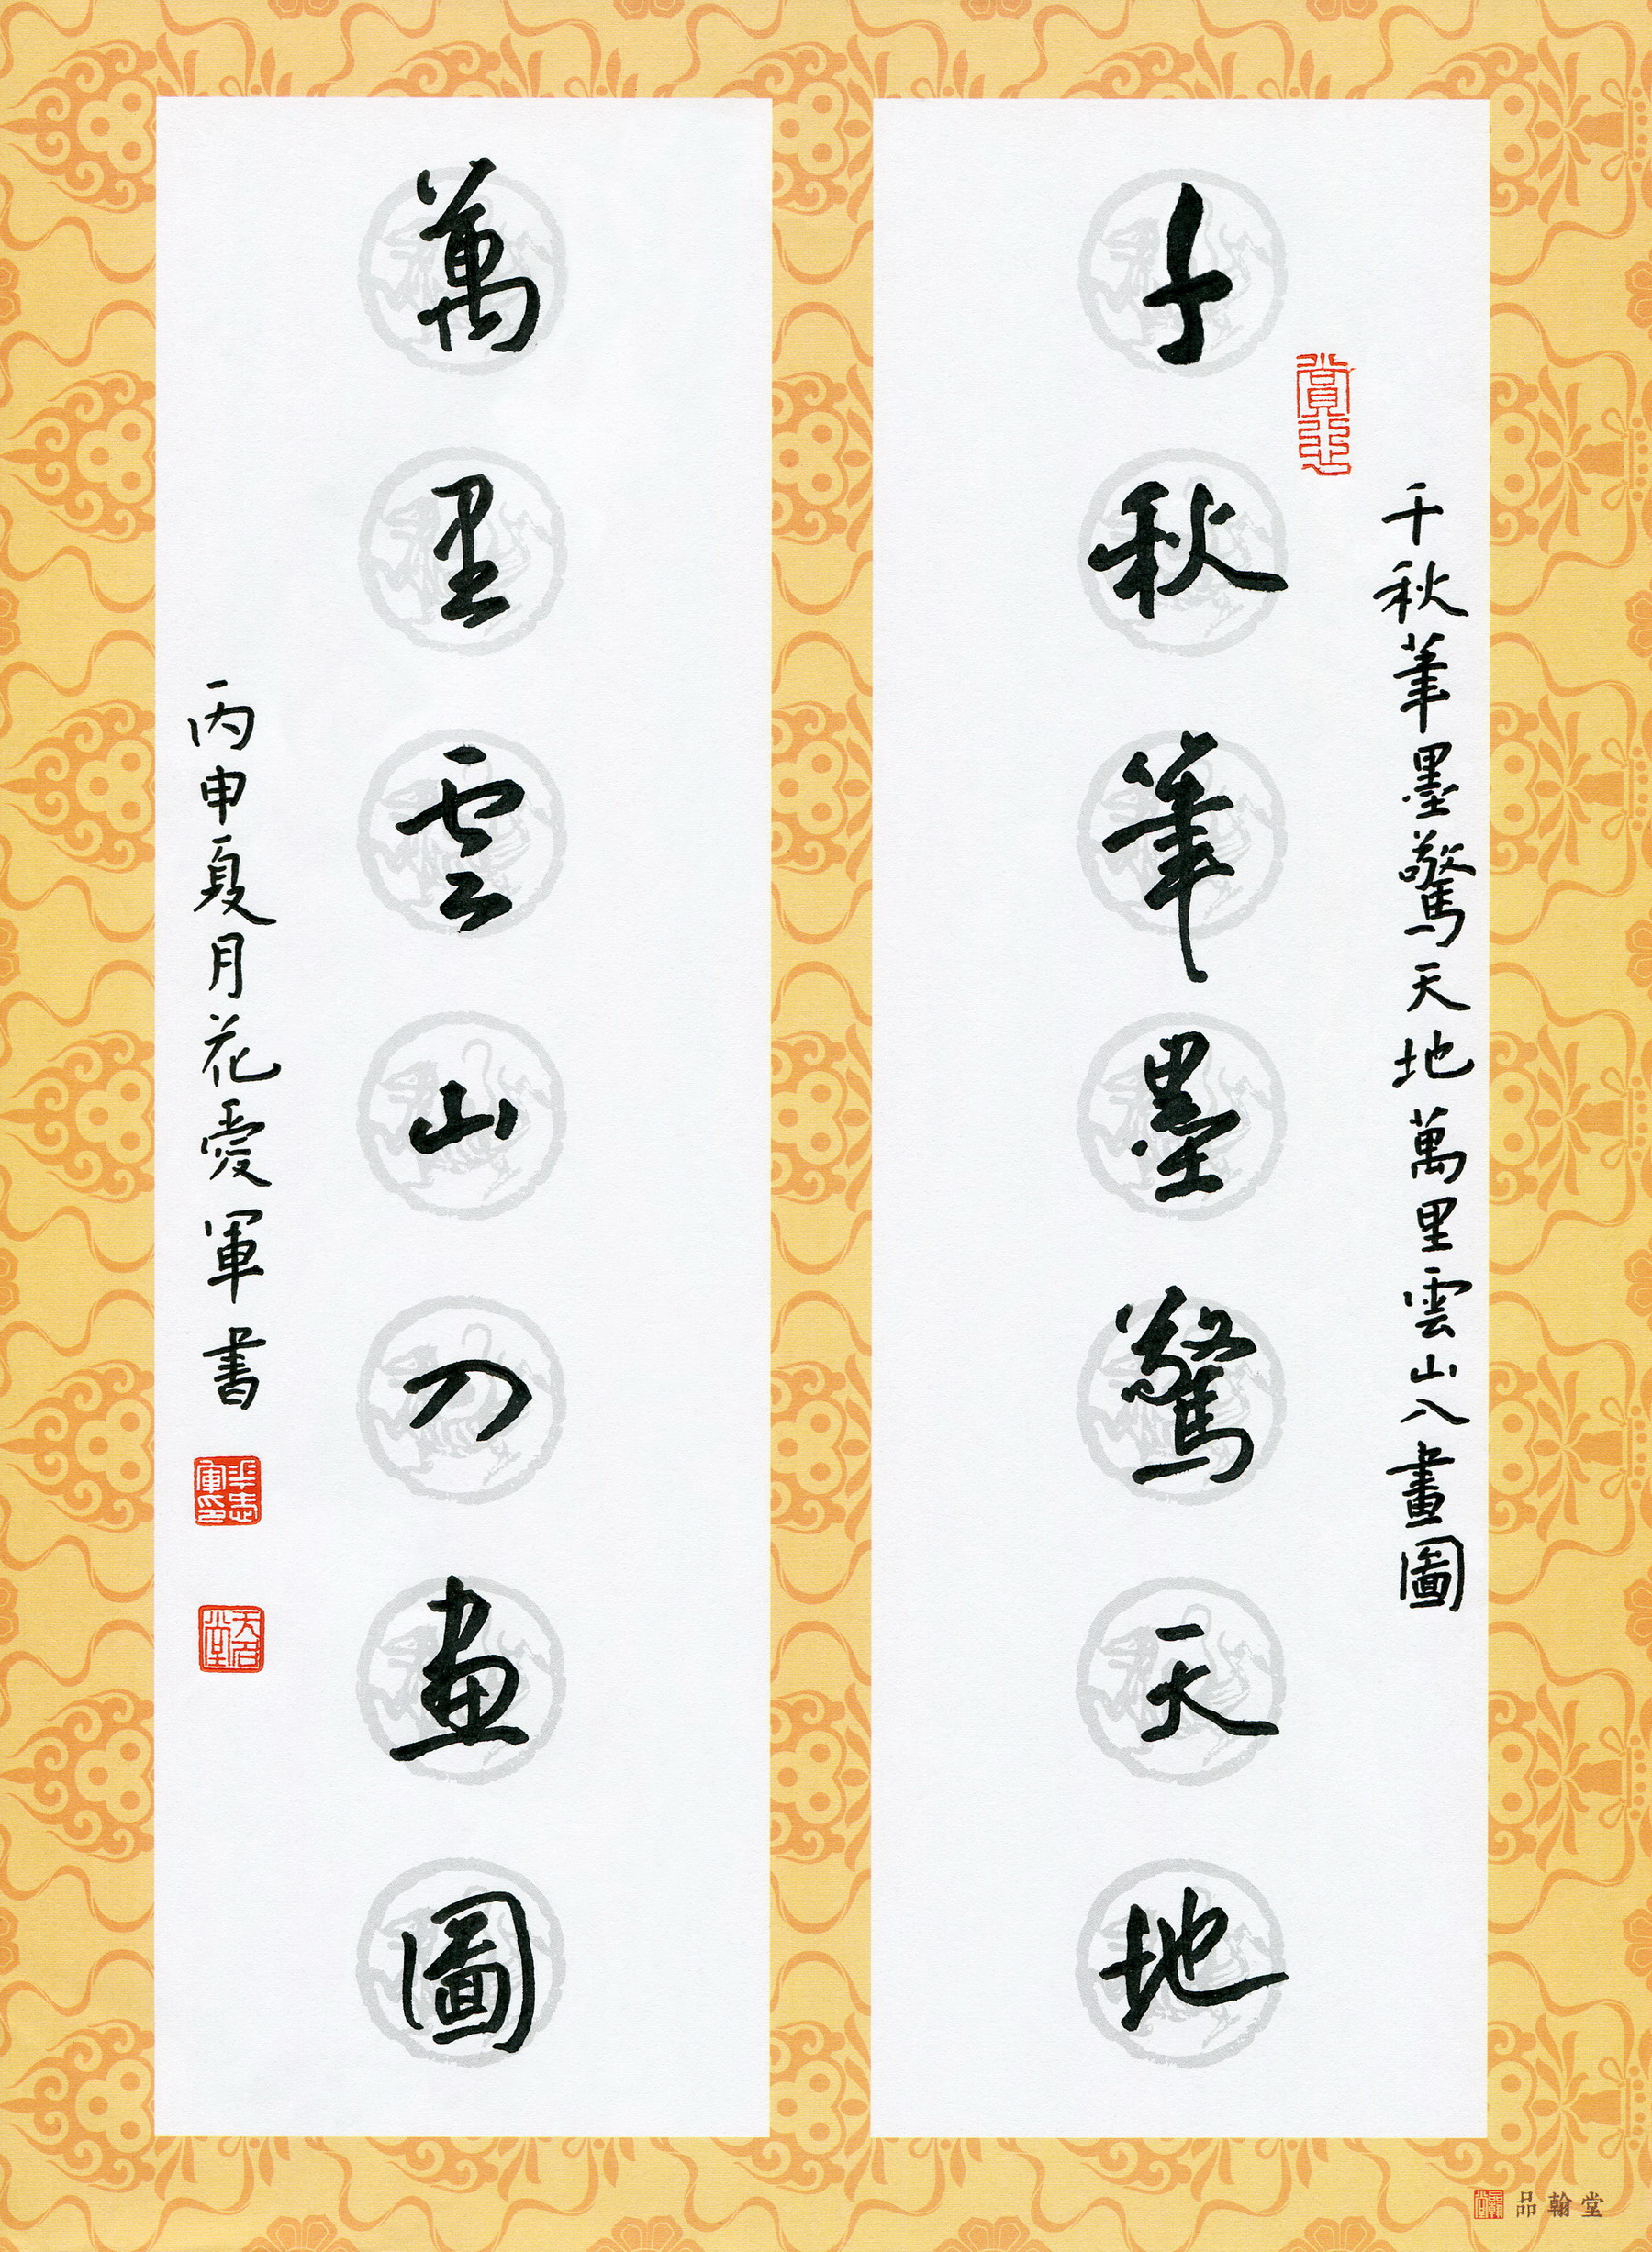 千秋筆墨驚天地萬里雲山入畫圖
千秋筆墨驚天地
萬里雲山入畫圖
丙申夏月花愛軍書
品翰堂